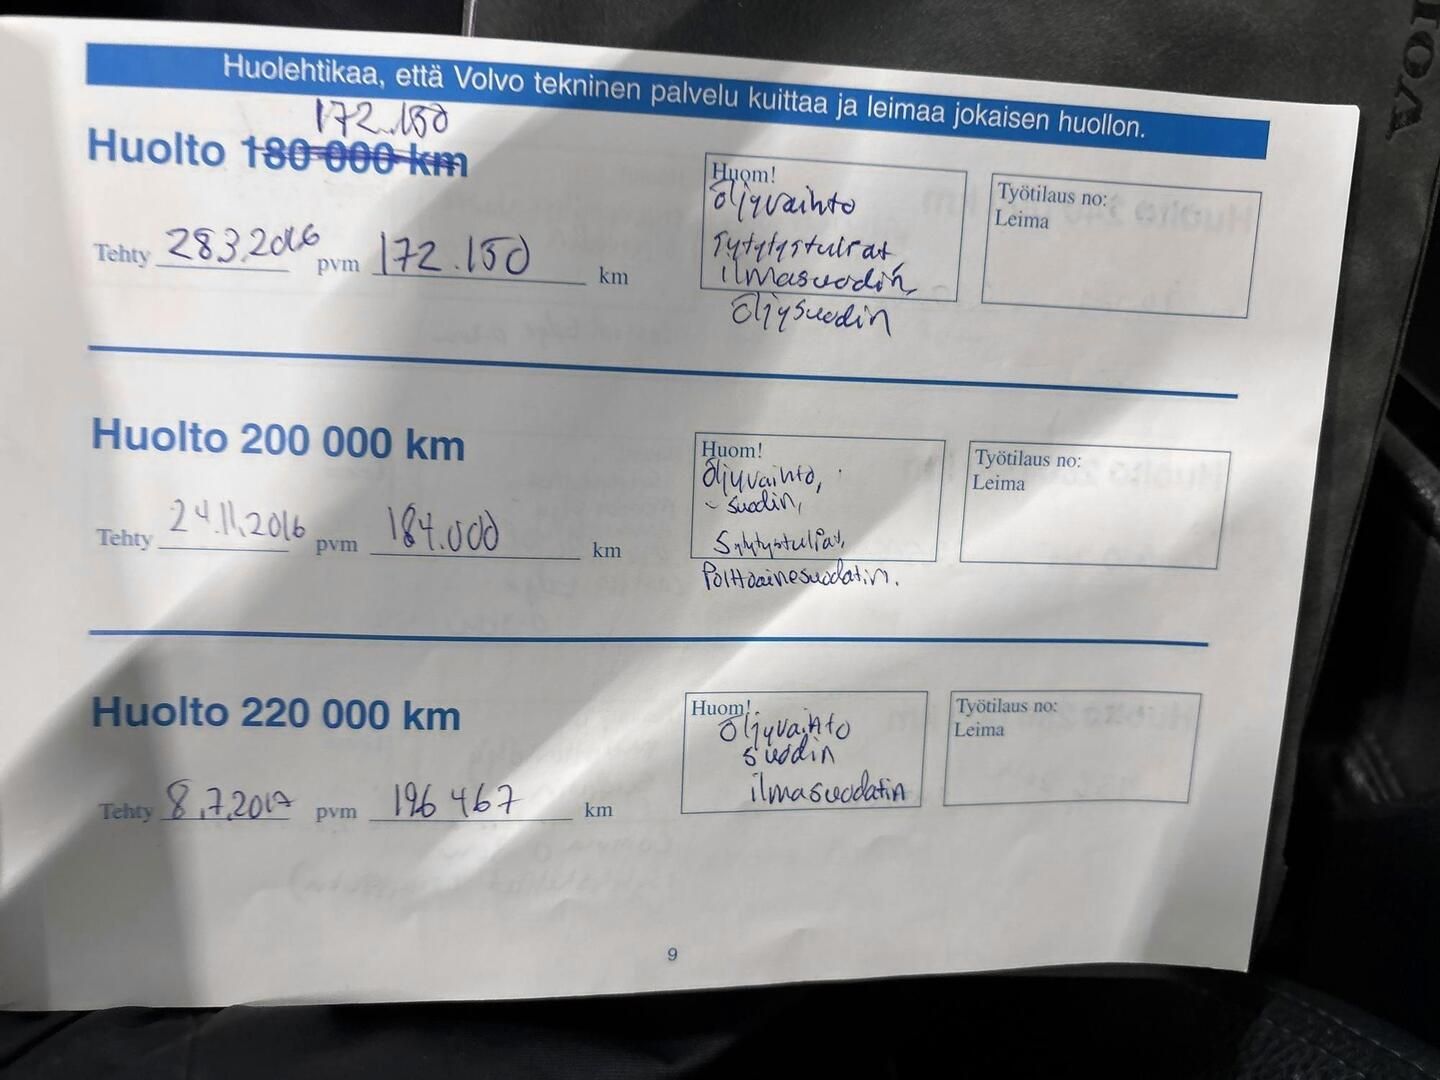 Huolehtikaa, että Volvo tekninen palvelu kuittaa ja leimaa jokaisen huollon.
172.150
Huolto 180 000 km
Tehty 28.3.2016 pvm 172.150 km
Huom!
Öljyvaihto
sytytystulpat
ilmasuodin,
Öljysuodin
Työtilaus no:
Leima
Huolto 200 000 km
Tehty 24.11.2016 pvm 184.000 km
Huom!
Öljyvaihto,
- suodin,
Sytytystulpat,
Polttoainesuodatin.
Työtilaus no:
Leima
Huolto 220 000 km
Tehty 8.7.2017 pvm 196 467 km
Huom!
Öljyvaihto
suodin
ilmasuodatin
Työtilaus no:
Leima
9